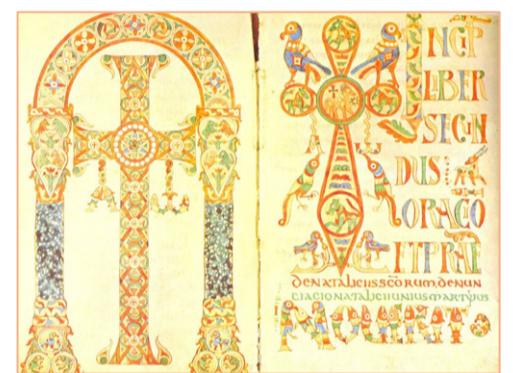 A ω
A ω
INCP
LIBER
SECUN
DUS
ORACO
ETPRAE
DENATALICIISSCORUMDENUN
CIACIONATALICIIUNIUSMARTYRIS